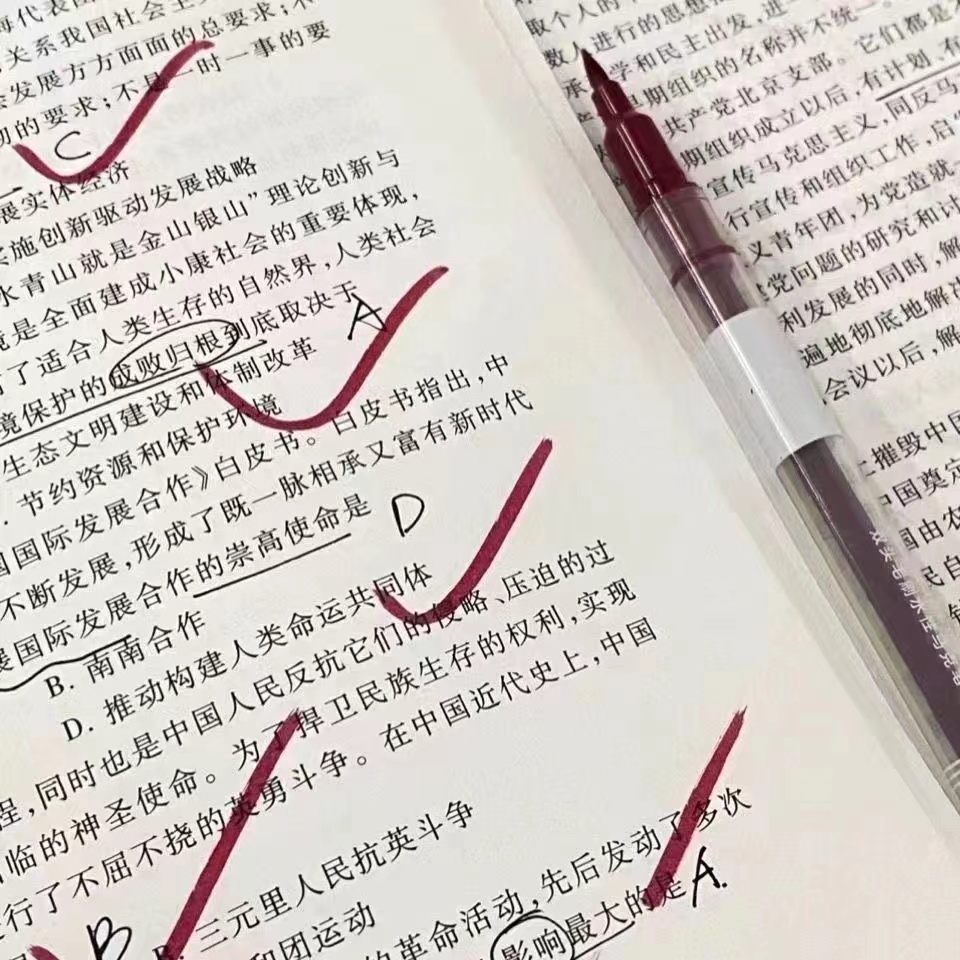 关系我国社会主
会发展方方面面的总要求;不
的要求;不是一时一事的要
C
展实体经济
实施创新驱动发展战略
水青山就是金山银山”理论创新与
境是全面建成小康社会的重要体现,
了适合人类生存的自然界,人类社会
境保护的成败归根到底取决于
A
生态文明建设和体制改革
节约资源和保护环境
国国际发展合作》白皮书。白皮书指出,中
不断发展,形成了既一脉相承又富有新时代
展国际发展合作的崇高使命是
D
B. 南南合作
D. 推动构建人类命运共同体
程,同时也是中国人民反抗它们的侵略、压迫的过
临的神圣使命。为了捍卫民族生存的权利,实现
行了不屈不挠的英勇斗争。在中国近代史上,中国
B
B. 三元里人民抗英斗争
和团运动
的革命活动,先后发动了多次
影响最大的是
A.
取个人的
数人进行的思想
学和民主出发,进一
早期组织的名称并不统一。它们都是
共产党北京支部。
期组织成立以后,有计划、有
宣传马克思主义,同反马
行宣传和组织工作,启
义青年团,为党造就
党问题的研究和讨
利发展的同时,解
遍地彻底地解决
会议以后,解
摧毁中国
中国奠定
国由农
民自